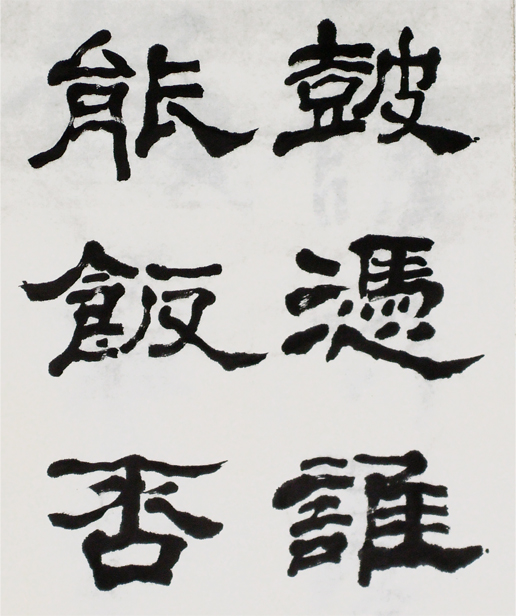 鼓憑誰
能飯否